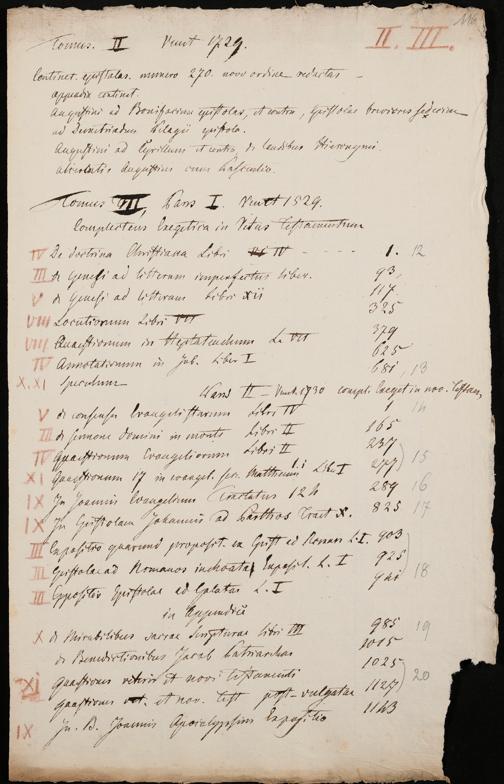 Tomus. II Venet 1729. II. III. 116
Continet epistolas. numero 270. novo ordine redactas
appendix continet.
Augustini ad Bonifacium epistolas, et contra, epistolas breviores sedecim
ad Demetriadem Pelagii epistola.
Augustini ad Cyrillum et contra, de laudibus Hieronymi.
altercatio Augustini cum Pascentio.
Tomus III, Pars I. Venet 1729.
Complectens Exegetica in Vetus Testamentum
IV De doctrina Christiana Libri IV - - - - 1. 12
III de Genesi ad litteram imperfectus liber. 93,
V de Genesi ad litteram Libri XII 117
VIII Locutionum Libri VII 325
VIII Quaestionum in Heptateuchum L. VII 379
IV Annotationum in Job. Liber I 625
X. XI Speculum 681, 13
Pars II - Venet. 1730 compl. Exeget in nov. Testam,
V de consensu Evangelistarum Libri IV 1 14
III de Sermone Domini in monte Libri II 165
IV Quaestionum Evangeliorum Libri II 237
XI Quaestionum 17 in evangel. sec. Matthaeum Lib. I 277) 15
IX In Joannis Evangelium Tractatus 124 289 16
IX In Epistolam Johannis ad Parthos Tract X. 825 17
III Expositio quarund proposit. ex Epist ad Roman L. I. 903
III Epistolae ad Romanos inchoata Exposit. L. I 925
III Expositio Epistolae ad Galatas L. I 18
in Appendice
X de Mirabilibus Sacrae Scripturae Libri III 985 19
de Benedictionibus Jacob Patriarchae 1015
XI Quaestiones veteris et novi Testamenti 1025
quaestiones vet. et nov. Test post. vulgatae 1127) 20
IX In B. Joannis Apocalypsim Expositio 1143